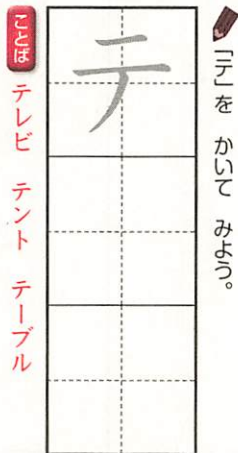 「テ」を かいて みよう。
テ
ことば テレビ テント テーブル